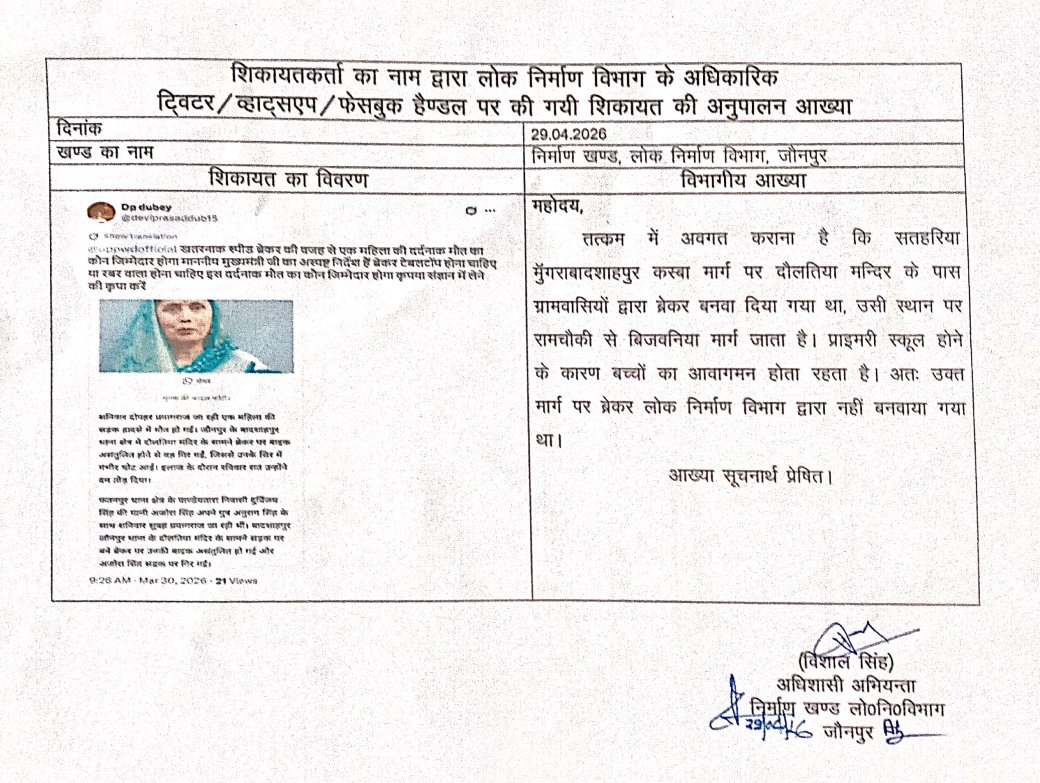 शिकायतकर्ता का नाम द्वारा लोक निर्माण विभाग के अधिकारिक
ट्विटर/व्हाट्सएप/फेसबुक हैण्डल पर की गयी शिकायत की अनुपालन आख्या
दिनांक
29.04.2026
खण्ड का नाम
निर्माण खण्ड, लोक निर्माण विभाग, जौनपुर
शिकायत का विवरण
Dp dubey
@deviprasaddub15
Show translation
@uppwdofficial खतरनाक स्पीड ब्रेकर की वजह से एक महिला की दर्दनाक मौत का
कौन जिम्मेदार होगा माननीय मुख्यमंत्री जी का अस्पष्ट निर्देश है ब्रेकर टेबलटॉप होना चाहिए
या रबर वाला होना चाहिए इस दर्दनाक मौत का कौन जिम्मेदार होगा कृपया संज्ञान में लेने
की कृपा करें
मृतक की फाइल फोटो।
शनिवार दोपहर प्रयागराज जा रही एक महिला की
सड़क हादसे में मौत हो गई। जौनपुर के बादशाहपुर
थाना क्षेत्र में दौलतिया मंदिर के सामने ब्रेकर पर बाइक
असंतुलित होने से वह गिर गईं, जिससे उनके सिर में
गंभीर चोट आई। इलाज के दौरान रविवार रात उन्होंने
दम तोड़ दिया।
थाना क्षेत्र के निवासी
सिंह की पत्नी सिंह अपने पुत्र अनुराग सिंह के
साथ शनिवार सुबह प्रयागराज जा रही थीं। बादशाहपुर
जौनपुर थाना के दौलतिया मंदिर के सामने सड़क पर
बने ब्रेकर पर उनकी बाइक असंतुलित हो गई और
सिंह सड़क पर गिर गईं।
9:26 AM · Mar 30, 2026 · 21 Views
विभागीय आख्या
महोदय,
तत्कम में अवगत कराना है कि सतहरिया
मुँगराबादशाहपुर कस्बा मार्ग पर दौलतिया मन्दिर के पास
ग्रामवासियों द्वारा ब्रेकर बनवा दिया गया था, उसी स्थान पर
रामचौकी से बिजवनिया मार्ग जाता है। प्राइमरी स्कूल होने
के कारण बच्चों का आवागमन होता रहता है। अतः उक्त
मार्ग पर ब्रेकर लोक निर्माण विभाग द्वारा नहीं बनवाया गया
था।
आख्या सूचनार्थ प्रेषित।
(विशाल सिंह)
अधिशासी अभियन्ता
निर्माण खण्ड लो0नि0विभाग
जौनपुर